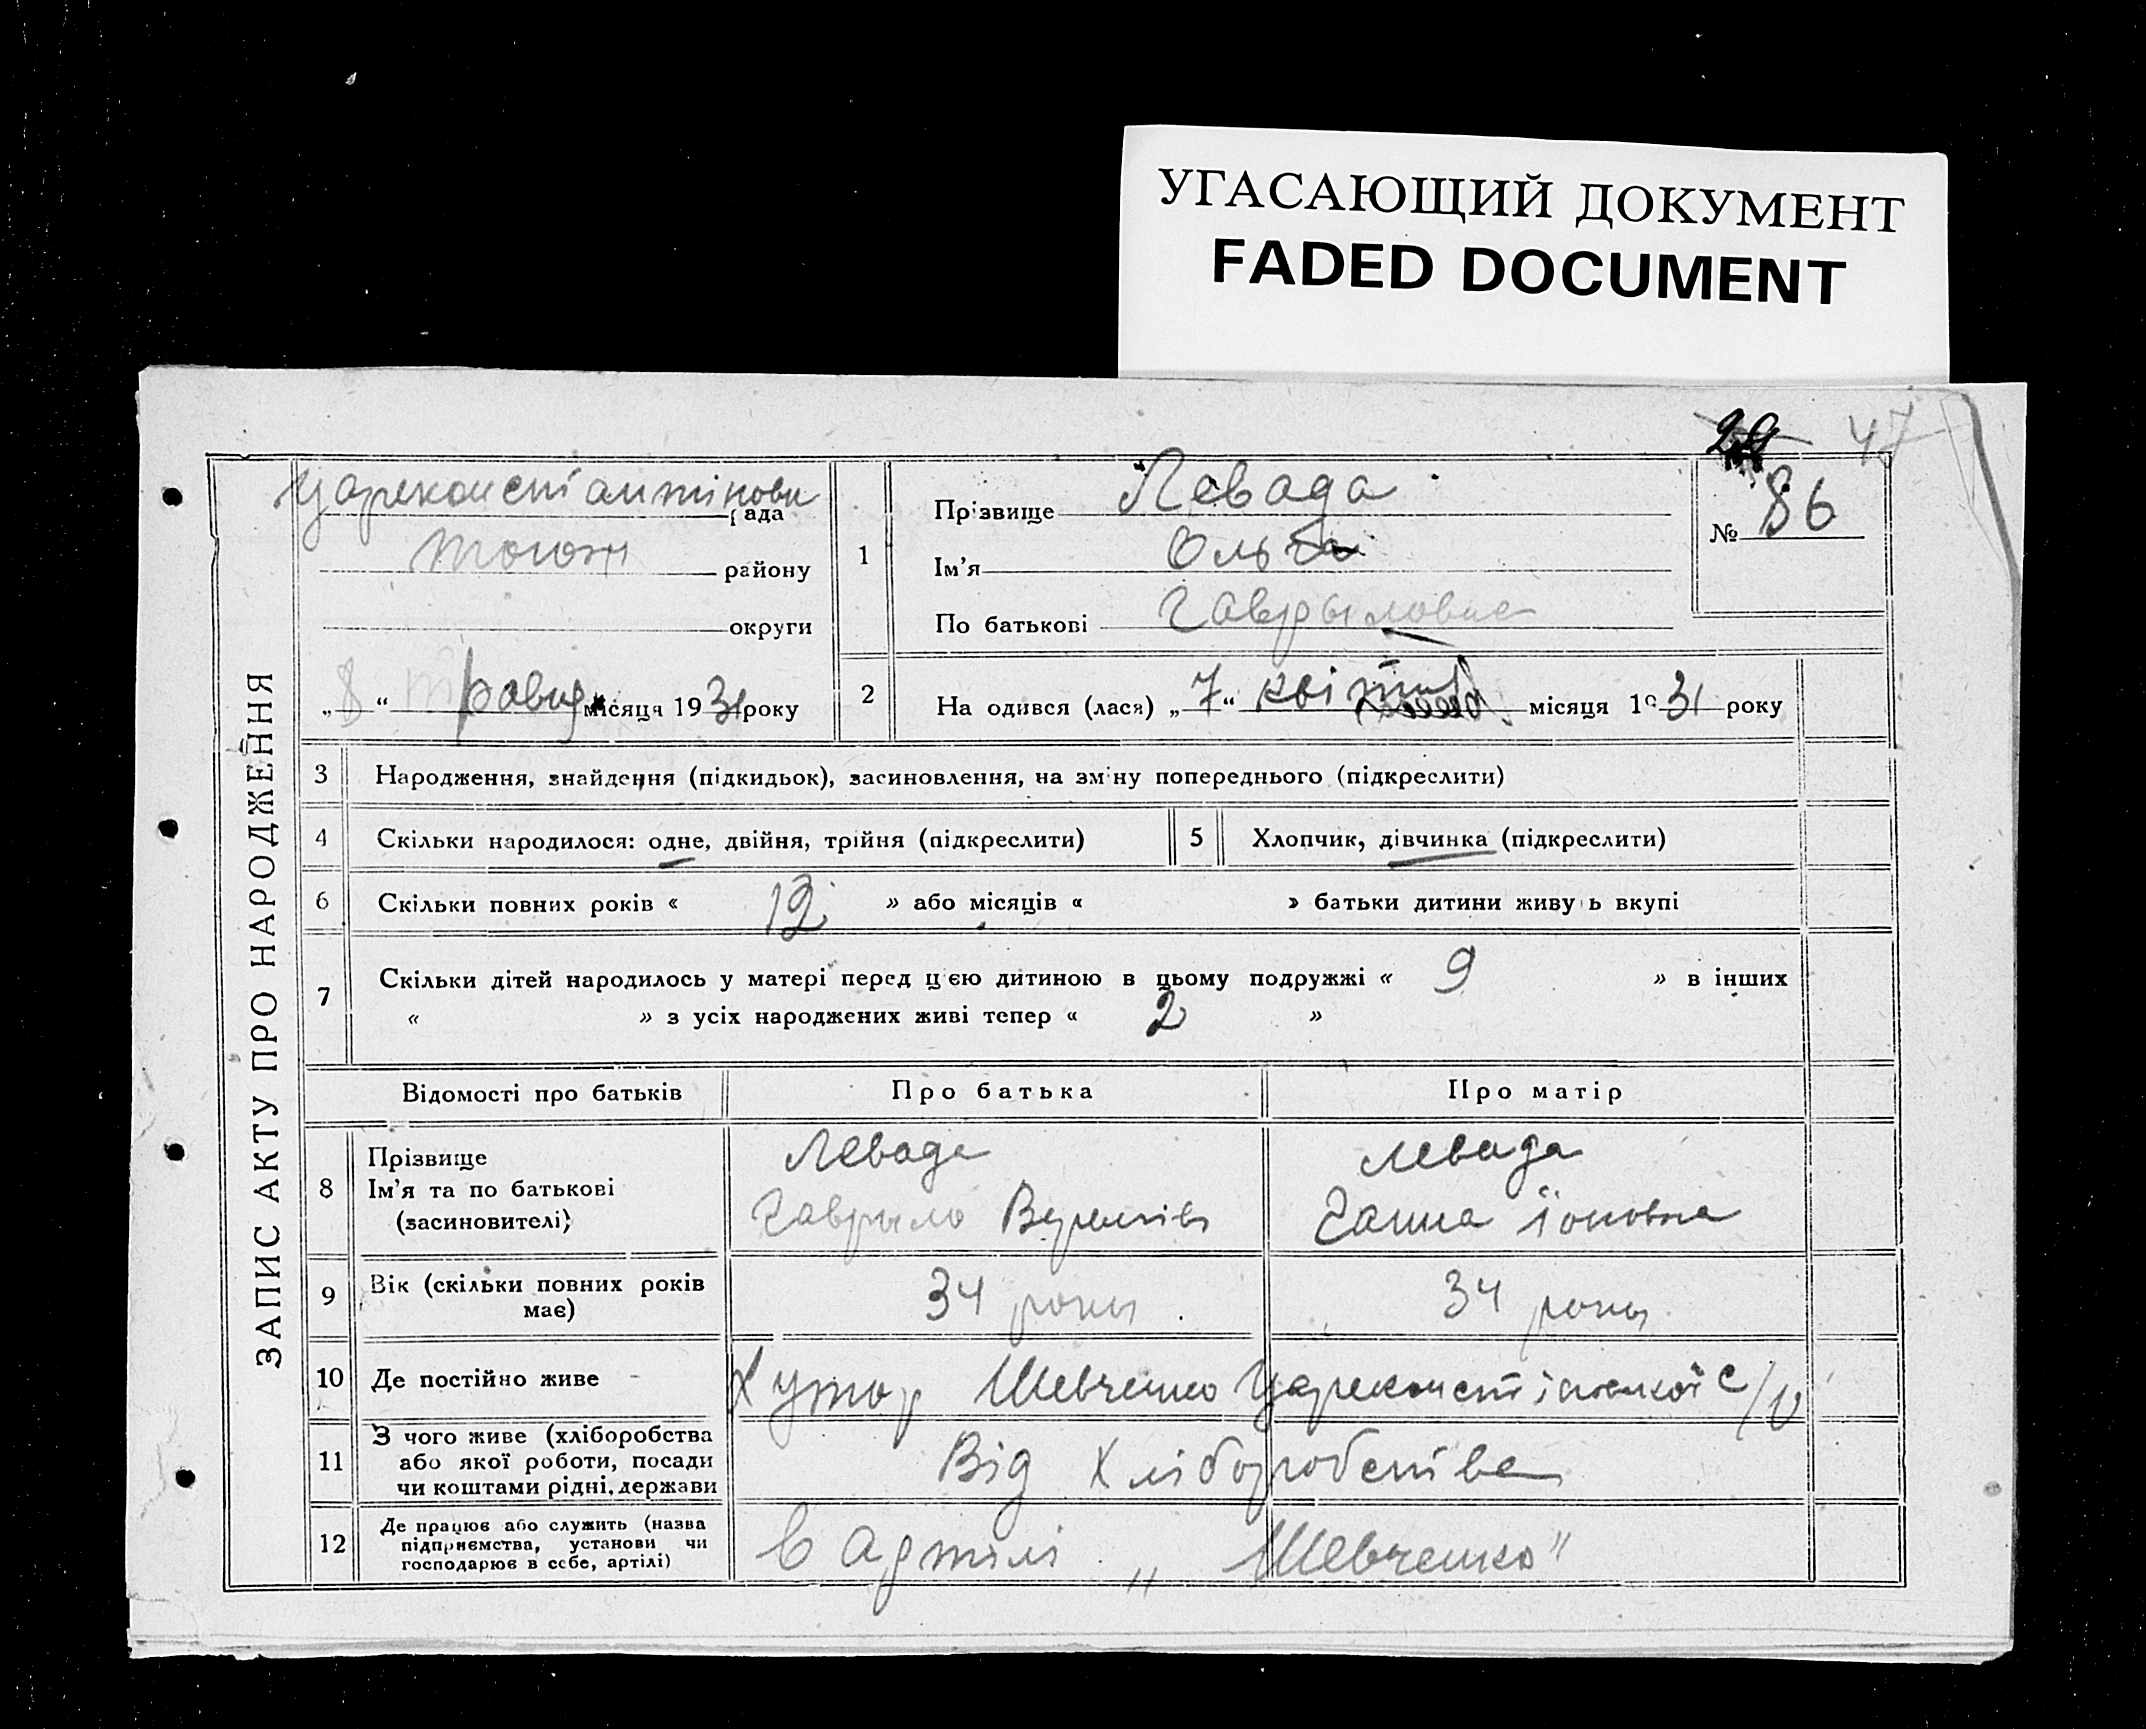 УГАСАЮЩИЙ ДОКУМЕНТ
FADED DOCUMENT
47
ЗАПИС АКТУ ПРО НАРОДЖЕННЯ
рада
району
округи
„8“ травня місяця 1931 року
1
Прізвище Левада
Ім'я Ольга
По батькові Гаврыловна
№ 86
2
На одився (лася) „7“ квітня місяця 1931 року
3 Народження, знайдення (підкидьок), засиновлення, на зміну попереднього (підкреслити)
4 Скільки народилося: одне, двійня, трійня (підкреслити)
5 Хлопчик, дівчинка (підкреслити)
6 Скільки повних років « 12 » або місяців « » батьки дитини живуть вкупі
7 Скільки дітей народилось у матері перед цією дитиною в цьому подружжі « 9 » в інших
« » з усіх народжених живі тепер « 2 »
Відомості про батьків Про батька Про матір
8 Прізвище
Ім'я та по батькові
(засиновителі)
Левада
Гаврыло
Левада
Ганна Їоновна
9 Вік (скільки повних років
має)
34 роки
34 роки
10 Де постійно живе
Хутор Шевченко с/р
11 З чого живе (хліборобства
або якої роботи, посади
чи коштами рідні, держави
Від хліборобства
12 Де працює або служить (назва
підприємства, установи чи
господарює в себе, артілі)
в Артілі „Шевченко"